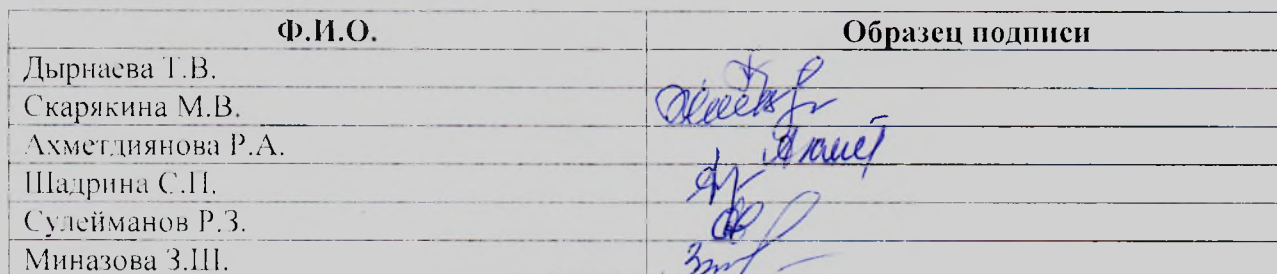 Ф.И.О. Образец подписи
Дырнаева Т.В.
Скарякина М.В.
Ахметдиянова Р.А.
Шадрина С.П.
Сулейманов Р.З.
Миназова З.Ш.